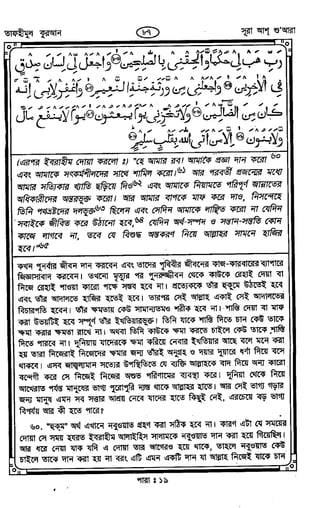 তাফহীমুল কুরআন ৮৭ সূরা আশ্ শু'আরা
رَبِّ هَبْ لِي حُكْمًا وَأَلْحِقْنِي بِالصَّالِحِينَ ﴿﴾ وَاجْعَلْ لِي لِسَانَ صِدْقٍ
فِي الْآخِرِينَ ﴿﴾ وَاجْعَلْنِي مِنْ وَرَثَةِ جَنَّةِ النَّعِيمِ ﴿﴾ وَاغْفِرْ لِأَبِي إِنَّهُ
كَانَ مِنَ الضَّالِّينَ ﴿﴾ وَلَا تُخْزِنِي يَوْمَ يُبْعَثُونَ ﴿﴾ يَوْمَ لَا يَنْفَعُ مَالٌ
وَلَا بَنُونَ ﴿﴾ إِلَّا مَنْ أَتَى اللَّهَ بِقَلْبٍ سَلِيمٍ ﴿﴾
(এরপর ইবরাহীম দোয়া করলো ঃ) "হে আমার রব! আমাকে প্রজ্ঞা দান করো ৬০
এবং আমাকে সৎকর্মশীলদের সাথে শামিল করো।৬১ আর পরবর্তী প্রজন্মের মধ্যে
আমার সত্যিকার খ্যাতি ছড়িয়ে দিও৬২ এবং আমাকে নিয়ামতে পরিপূর্ণ জান্নাতের
অধিকারীদের অন্তরভুক্ত করো। আর আমার বাপকে মাফ করে দাও, নিসন্দেহে
তিনি পথভ্রষ্টদের দলভুক্ত৬৩ ছিলেন এবং সেদিন আমাকে লাঞ্ছিত করো না যেদিন
সবাইকে জীবিত করে উঠানো হবে,৬৪ যেদিন অর্থ-সম্পদ ও সন্তান-সন্ততি কোন
কাজে লাগবে না, তবে যে বিশুদ্ধ অন্তকরণ নিয়ে আল্লাহর সামনে হাজির
হবে।"৬৫
কখন পুনর্বার জীবন দান করবেন এবং তাদের পৃথিবীর জীবনের কাজ-কারবারের ব্যাপারে
জিজ্ঞাসাবাদ করবেন। তখনো মৃত্যুর পর পুনরুজ্জীবন থেকে কাউকে রেহাই দেয়া বা
নিজে রেহাই পাওয়া কারো পক্ষে সম্ভব হবে না। প্রত্যেককে তাঁর হুকুমে উঠতেই হবে
এবং তাঁর আদালতে হাজির হতেই হবে। তারপর সেই আল্লাহ একাই সেই আদালতের
বিচারপতি হবেন। তাঁর ক্ষমতায় কেউ সামান্যতমও শরীক হবে না। শাস্তি দেয়া বা মাফ
করা উভয়টিই হবে সম্পূর্ণ তাঁর ইখতিয়ারভুক্ত। তিনি যাকে শাস্তি দিতে চান কেউ তাকে
ক্ষমা করার ক্ষমতা রাখে না। অথবা তিনি কাউকে ক্ষমা করতে চাইলে কেউ তাকে শাস্তি
দিতে পারবে না। দুনিয়ায় যাদেরকে ক্ষমা করিয়ে নেবার ইখতিয়ার আছে বলে মনে করা
হয় তারা নিজেরাই নিজেদের ক্ষমার জন্য তাঁরই অনুগ্রহ ও দয়ার দুয়ারে ধর্ণা দিয়ে বসে
থাকবে। এসব জাজ্বল্যমান সত্যের উপস্থিতিতে যে ব্যক্তি আল্লাহকে বাদ দিয়ে অন্য কারো
বন্দেগী করে সে নিজেই নিজের অশুভ পরিণামের ব্যবস্থা করে। দুনিয়া থেকে নিয়ে
আখেরাত পর্যন্ত মানুষের ভাগ্য পুরোপুরি ন্যস্ত থাকে আল্লাহর হাতে। আর সেই ভাগ্য গড়ার
জন্য মানুষ এমন সব সত্তার আশ্রয় নেবে যাদের হাতে কিছুই নেই, এরচেয়ে বড় ভাগ্য
বিপর্যয় আর কী হতে পারে?
৬০. "হুকুম" অর্থ এখানে নবুওয়াত গ্রহণ করা সঠিক হবে না। কারণ এটা যে সময়ের
দোয়া সে সময় হযরত ইবরাহীম আলাইহিস সালামকে নবুওয়াত দান করা হয়ে গিয়েছিল।
আর ধরে নেয়া যাক যদি এ দোয়া তার আগেরও হয়ে থাকে, তাহলে নবুওয়াত কেউ
চাইলে তাকে দান করা হয় না বরং এটি এমন একটি দান যা আল্লাহ নিজেই যাকে চান
পারা ঃ ১৯